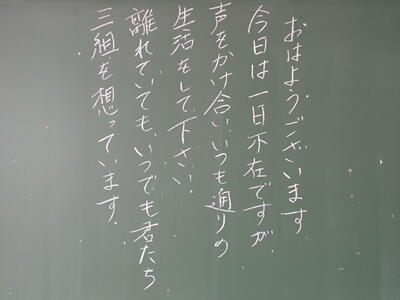 おはようございます
今日は一日不在ですが
声をかけ合い、いつも通りの
生活をして下さい。
離れていても、いつでも君たち
三組を想っています。